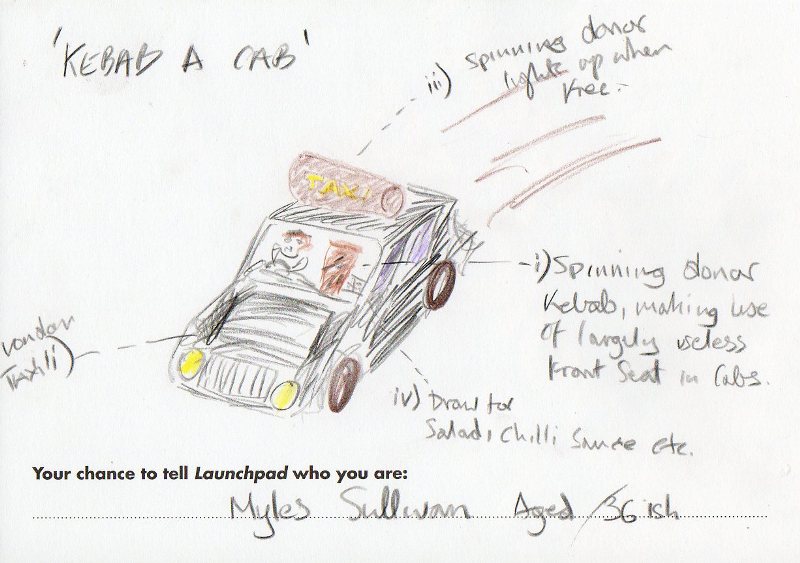 'KEBAB A CAB'
iii) Spinning donor
lights up when
free.
TAXI
i) Spinning donor
kebab, making use
of largely useless
front Seat in Cabs.
London
Taxi ii)
iv) Draw for
Salad, Chilli Sauce etc.
Your chance to tell Launchpad who you are:
Myles Sullivan Aged 36 ish